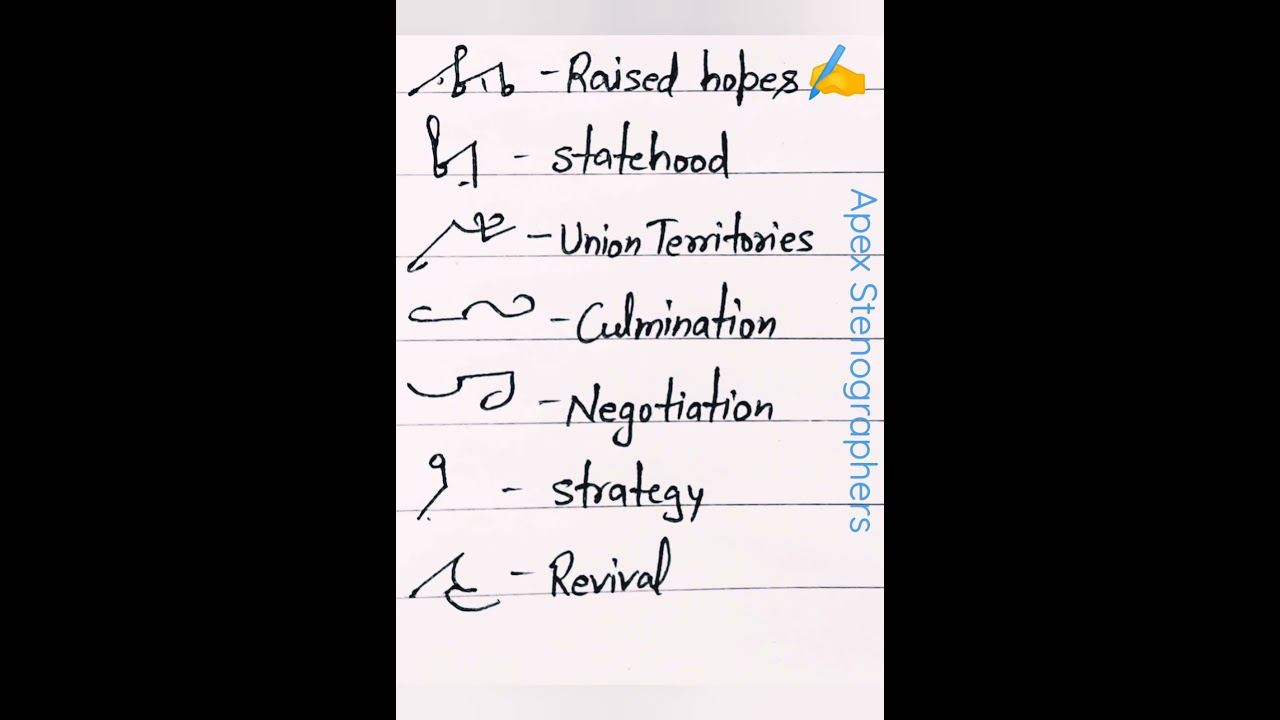 - Raised hopes
- statehood
- Union Territories
- Culmination
- Negotiation
- strategy
- Revival
Apex Stenographers